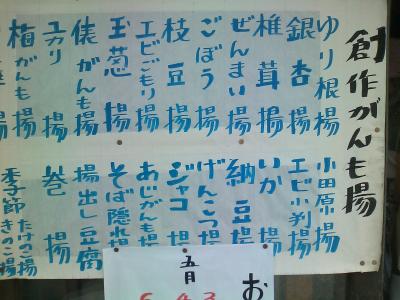 創作がんも揚
ゆり根揚
銀杏揚
椎茸揚
ぜんまい揚
ごぼう揚
枝豆揚
エビごもり揚
玉葱揚
俵がんも揚
ユカリ揚
梅がんも揚
小田原揚
エビ小判揚
いか揚
納豆揚
げんこつ揚
ジャコ揚
あじがんも揚
そば隠れ揚
揚出し豆腐
巻揚
季節たけのこ揚
きのこ揚
お
五月